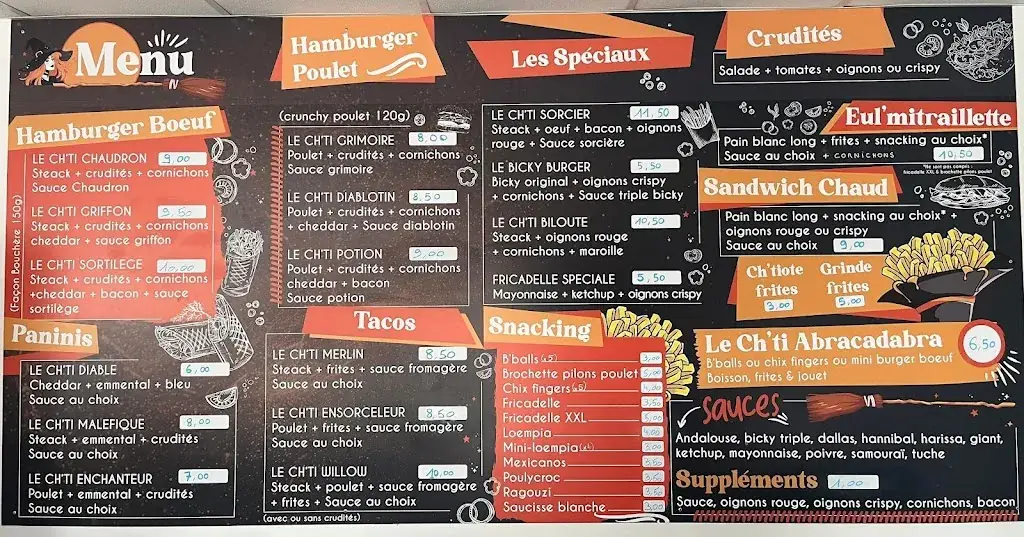 Menu
Hamburger Boeuf
(Façon Bouchère 150g)
LE CH'TI CHAUDRON 9,00
Steack + crudités + cornichons
Sauce Chaudron
LE CH'TI GRIFFON 9.50
Steack + crudités + cornichons
cheddar + sauce griffon
LE CH'TI SORTILEGE 10,00
Steack + crudités + cornichons
+cheddar + bacon + sauce
sortilège
Paninis
LE CH'TI DIABLE 6,00
Cheddar + emmental + bleu
Sauce au choix
LE CH'TI MALEFIQUE 8,00
Steack + emmental + crudités
Sauce au choix
LE CH'TI ENCHANTEUR 7,00
Poulet + emmental + crudités
Sauce au choix
Hamburger
Poulet
(crunchy poulet 120g)
LE CH'TI GRIMOIRE 8,00
Poulet + crudités + cornichons
Sauce grimoire
LE CH'TI DIABLOTIN 8,50
Poulet + crudités + cornichons
+ cheddar + Sauce diablotin
LE CH'TI POTION 9,00
Poulet + crudités + cornichons
cheddar + bacon
Sauce potion
Tacos
LE CH'TI MERLIN 8,50
Steack + frites + sauce fromagère
Sauce au choix
LE CH'TI ENSORCELEUR 8,50
Poulet + frites + sauce fromagère
Sauce au choix
LE CH'TI WILLOW 10,00
Steack + poulet + sauce fromagère
+ frites + Sauce au choix
(avec ou sans crudités)
Les Spéciaux
LE CH'TI SORCIER 11,50
Steack + oeuf + bacon + oignons
rouge + Sauce sorcière
LE BICKY BURGER 5,50
Bicky original + oignons crispy
+ cornichons + Sauce triple bicky
LE CH'TI BILOUTE 10,50
Steack + oignons rouge
+ cornichons + maroille
FRICADELLE SPECIALE 5,50
Mayonnaise + ketchup + oignons crispy
Snacking
B'balls (x5) 3,00
Brochette pilons poulet 5,00
Chix fingers (x5) 4,00
Fricadelle 3,50
Fricadelle XXL 5,00
Loempia 4,00
Mini-loempia 3,00
Mexicanos 3,50
Poulycroc 3,50
Ragouzi 3,50
Saucisse blanche 3,00
Crudités
Salade + tomates + oignons ou crispy
Eul'mitraillette
Pain blanc long + frites + snacking au choix*
Sauce au choix + CORNICHONS 10,50
*Ne sont pas compris
fricadelle XXL & brochette pilons poulet
Sandwich Chaud
Pain blanc long + snacking au choix* +
oignons rouge ou crispy
Sauce au choix 9,00
Ch'tiote
frites
3,00
Grinde
frites
5,00
Le Ch'ti Abracadabra 6,50
B'balls ou chix fingers ou mini burger boeuf
Boisson, frites & jouet
sauces
Andalouse, bicky triple, dallas, hannibal, harissa, giant,
ketchup, mayonnaise, poivre, samouraï, tuche
Suppléments 1,00
Sauce, oignons rouge, oignons crispy, cornichons, bacon